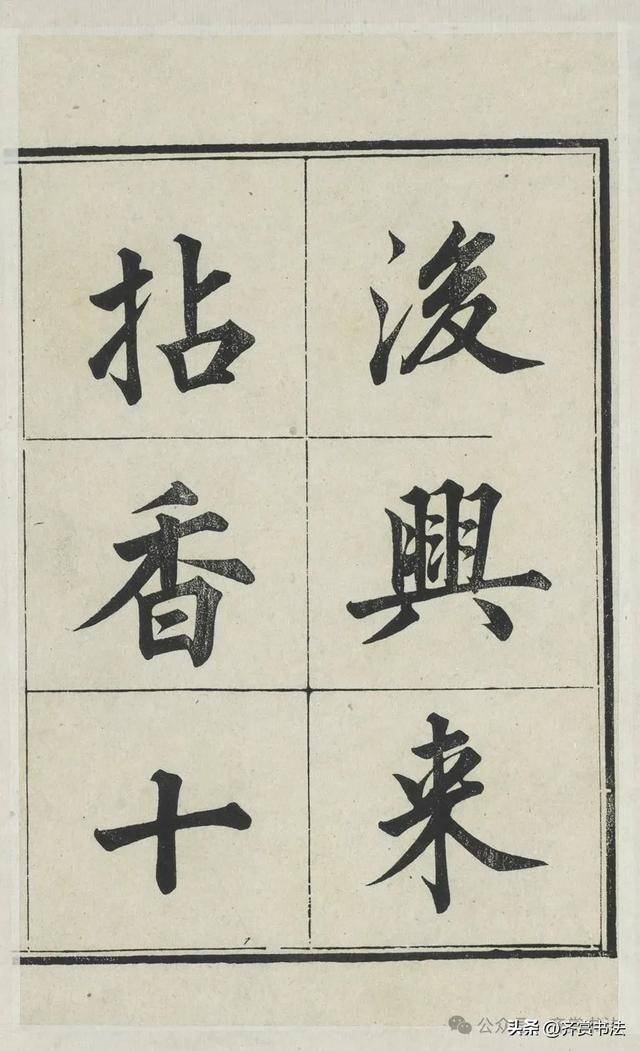 浚興来
拈香十
公众号
头条 @齐赏书法